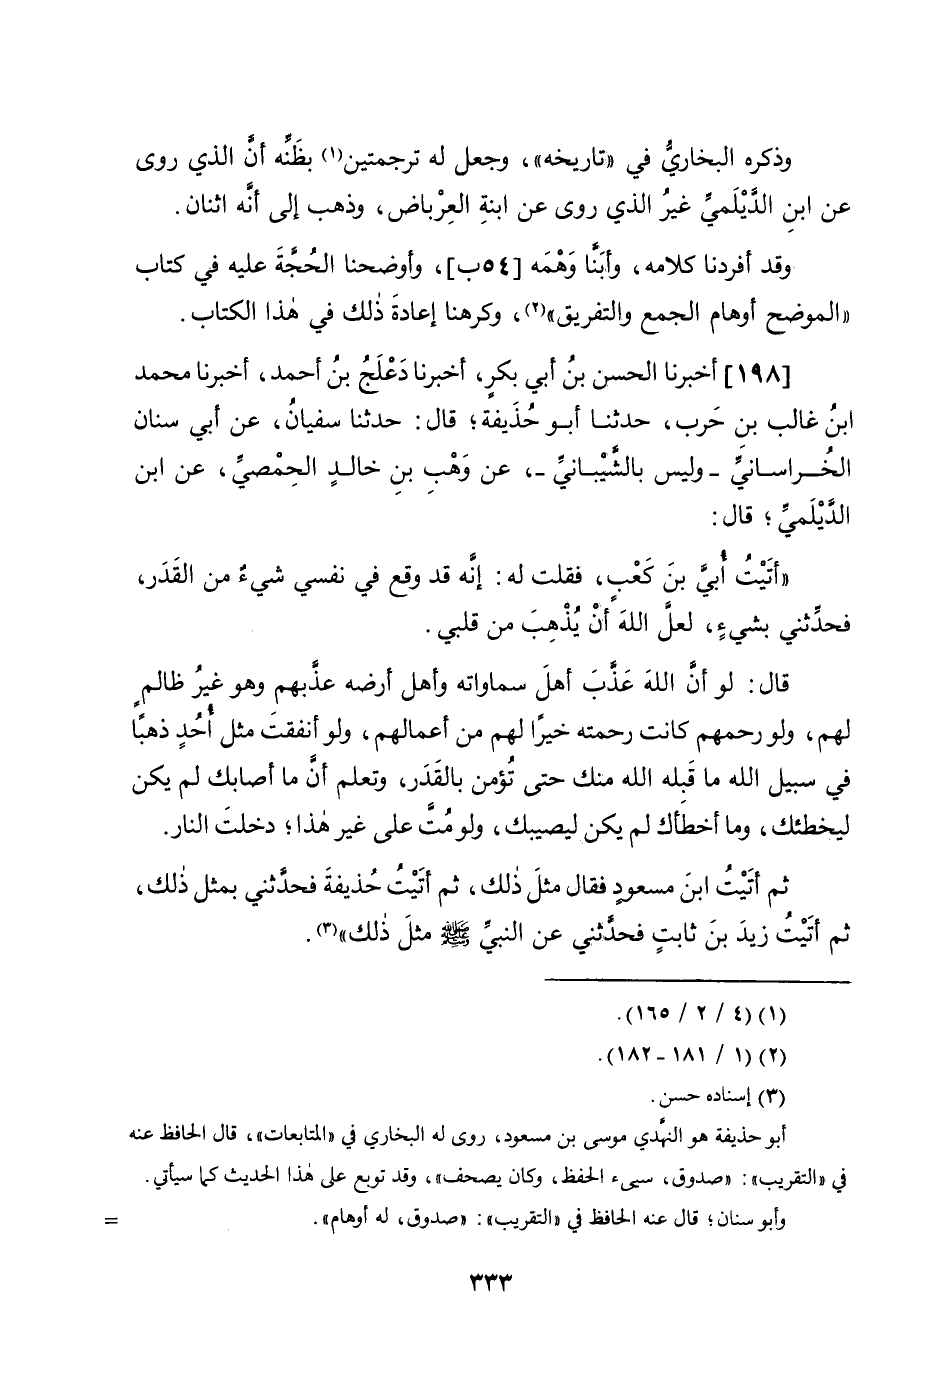 وذكره البخاريُّ في «تاريخه»، وجعل له ترجمتين(١) بظَنِّه أنَّ الذي روى
عن ابنِ الدَّيْلَميِّ غيرُ الذي روى عن ابنةِ العِرْباض، وذهب إلى أنَّه اثنان.
وقد أفردنا كلامه، وأبَنَّا وَهْمَه [٥٤ب]، وأوضحنا الحُجَّةَ عليه في كتاب
«الموضح أوهام الجمع والتفريق»(٢)، وكرهنا إعادةَ ذٰلك في هٰذا الكتاب.
[١٩٨] أخبرنا الحسن بنُ أبي بكرٍ، أخبرنا دَعْلَجُ بنُ أحمد، أخبرنا محمد
ابنُ غالب بنِ حَرب، حدثنا أبو حُذَيفة؛ قال: حدثنا سفيانُ، عن أبي سنان
الخُراسانيِّ ـ وليس بالشَّيْبانيِّ ـ، عن وَهْبِ بنِ خالدٍ الحِمْصيِّ، عن ابن
الدَّيْلَميِّ؛ قال:
«أتَيْتُ أُبيَّ بنَ كَعْبٍ، فقلت له: إنَّه قد وقع في نفسي شيءٌ من القَدَر،
فحدِّثني بشيءٍ، لعلَّ اللهَ أنْ يُذْهِبَ من قلبي.
قال: لو أنَّ اللهَ عَذَّبَ أهلَ سماواته وأهل أرضه عذَّبهم وهو غيرُ ظالمٍ
لهم، ولو رحمهم كانت رحمته خيرًا لهم من أعمالهم، ولو أنفقتَ مثل أُحُدٍ ذهبًا
في سبيل الله ما قَبِله الله منك حتى تُؤمن بالقَدَر، وتعلم أنَّ ما أصابك لم يكن
ليخطئك، وما أخطأك لم يكن ليصيبك، ولو مُتَّ على غير هٰذا؛ دخلتَ النار.
ثم أتَيْتُ ابنَ مسعودٍ فقال مثلَ ذٰلك، ثم أتَيْتُ حُذيفةَ فحدَّثني بمثل ذٰلك،
ثم أتَيْتُ زيدَ بنَ ثابتٍ فحدَّثني عن النبيِّ ﷺ مثلَ ذٰلك»(٣).
(١) (٤ / ٢ / ١٦٥).
(٢) (١ / ١٨١ ـ ١٨٢).
(٣) إسناده حسن.
أبو حذيفة هو النَّهْدي موسى بن مسعود، روى له البخاري في «المتابعات»، قال الحافظ عنه
في «التقريب»: «صدوق، سيىء الحفظ، وكان يصحف»، وقد توبع على هٰذا الحديث كما سيأتي.
وأبو سنان؛ قال عنه الحافظ في «التقريب»: «صدوق، له أوهام». =
٣٣٣